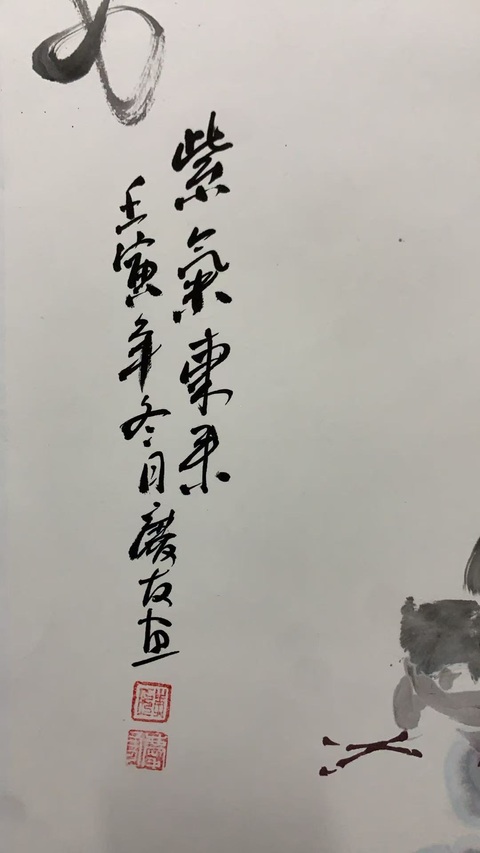 紫氣東来
壬寅年冬月慶友画